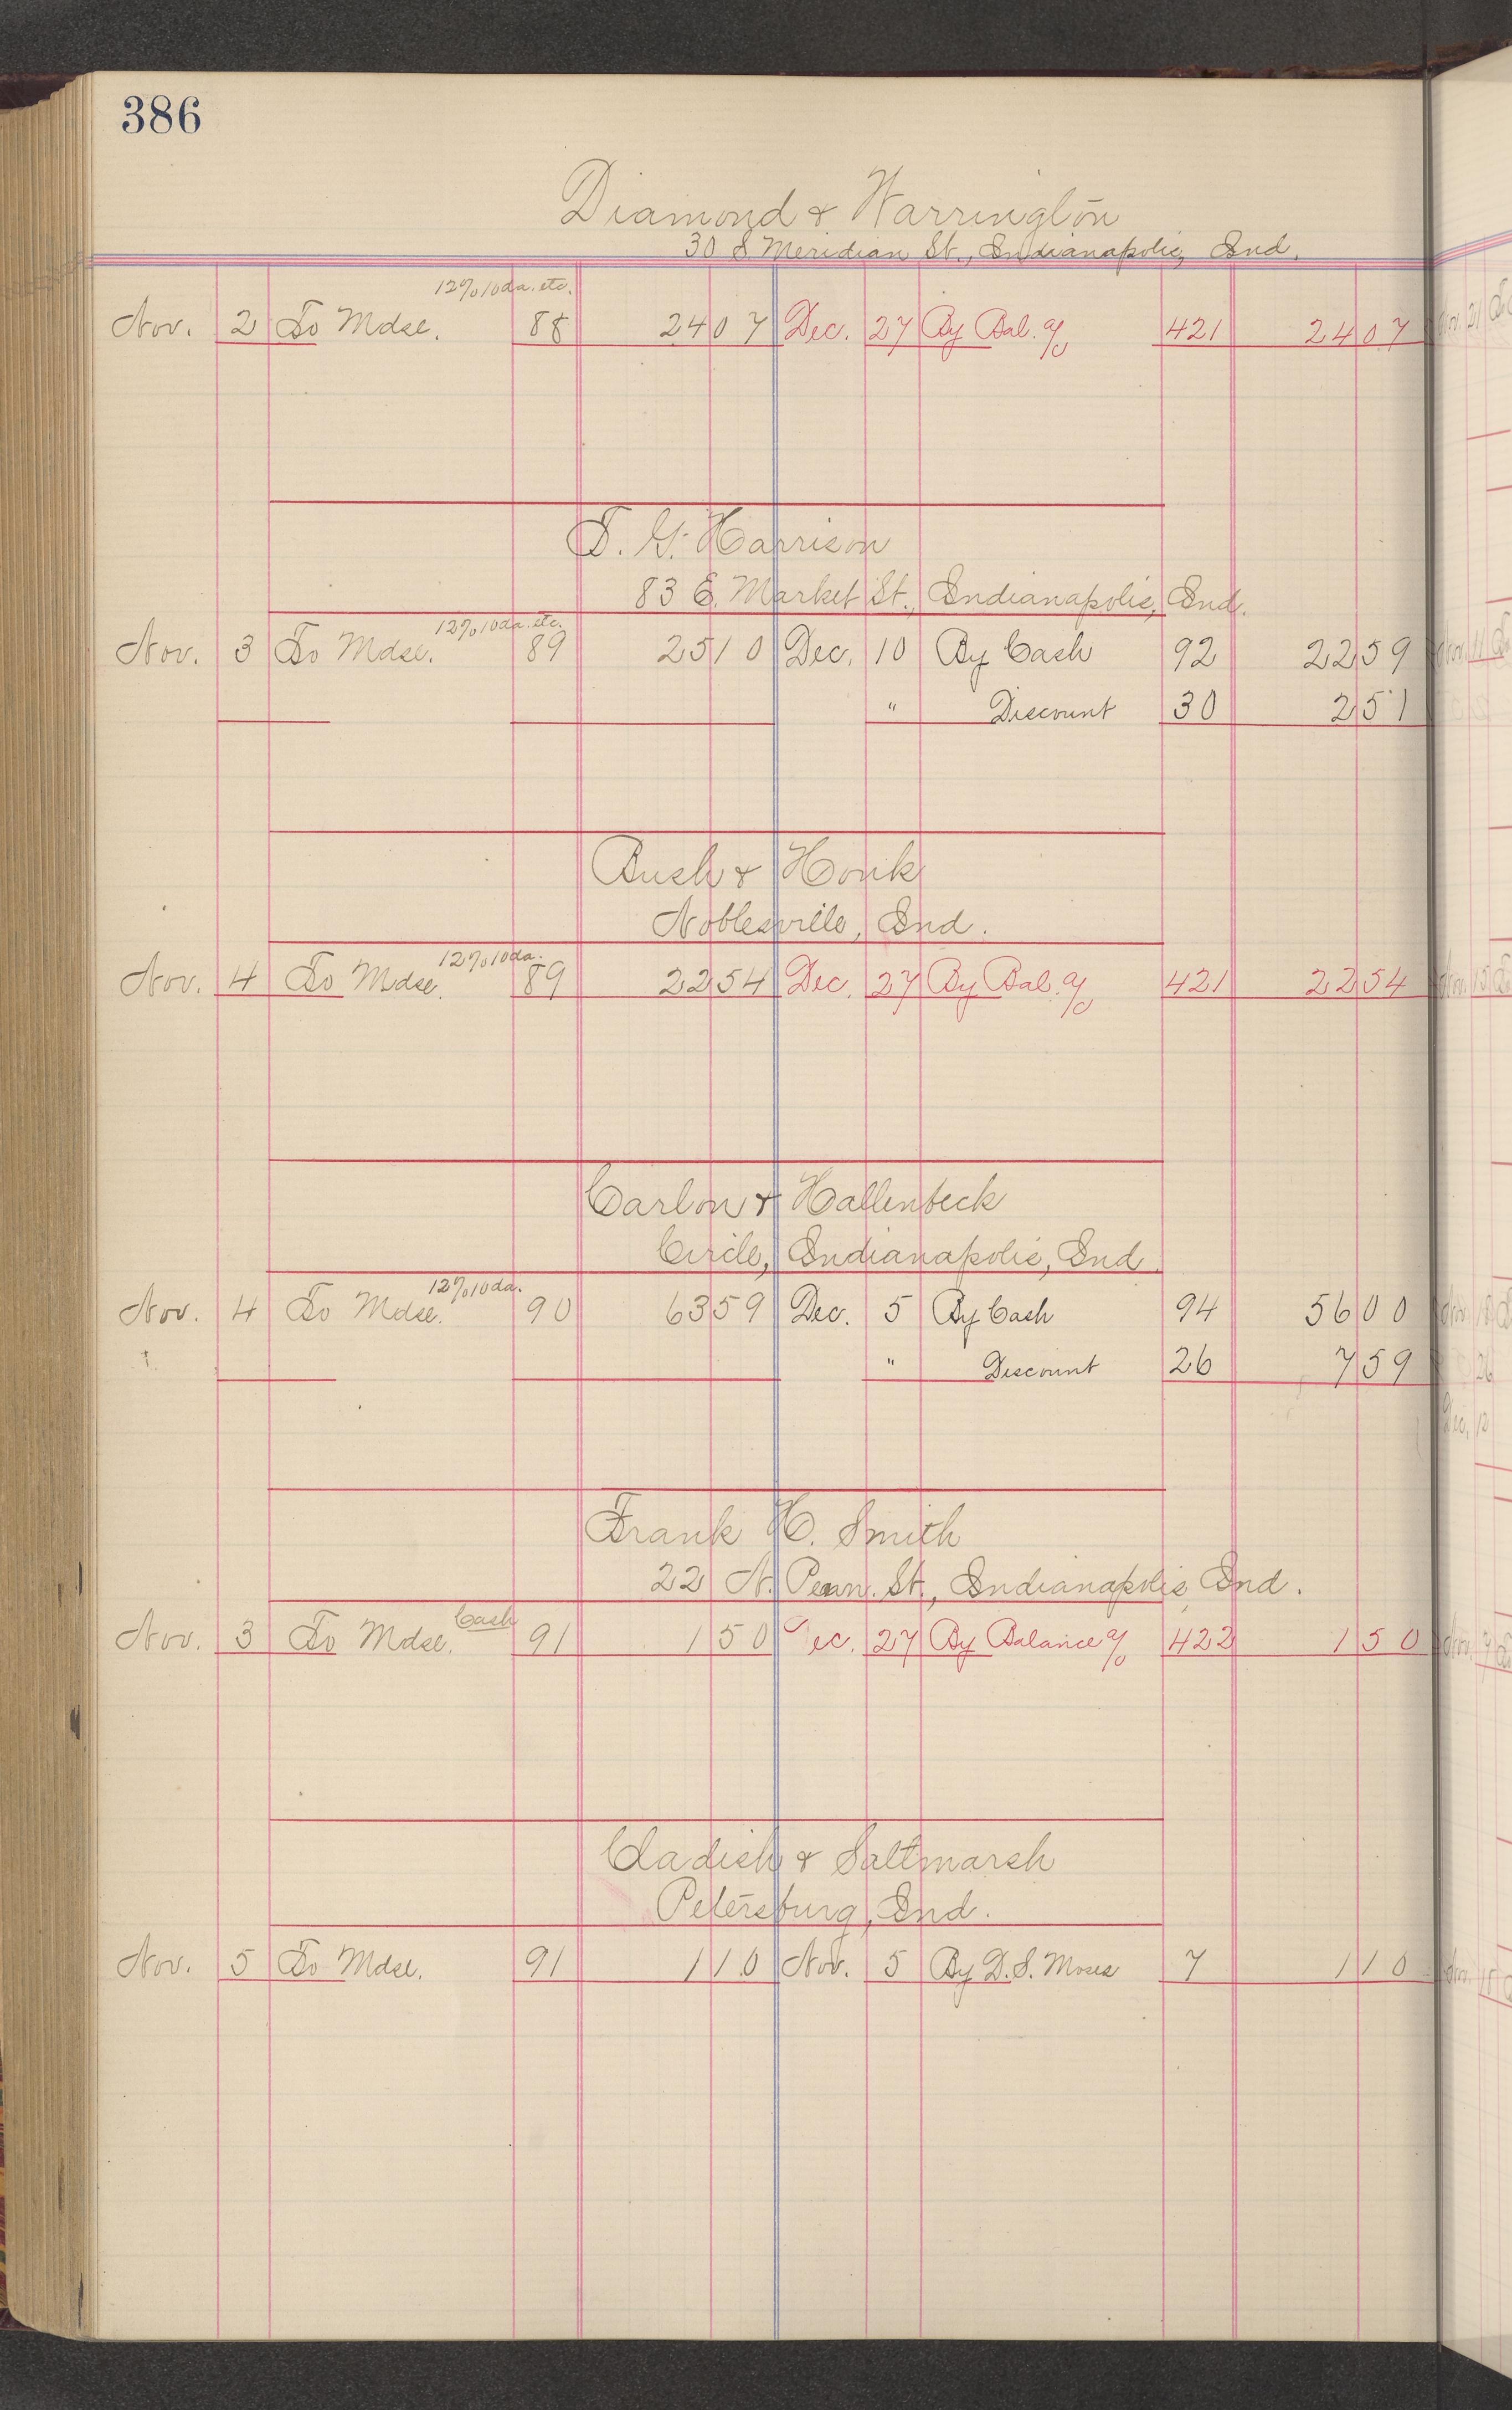 386
Diamond & Warrington
30 S Meridian St., Indianapolis, Ind.
12% 10 da. etc.
Nov. 2 To Mdse. 88 24 07 Dec. 27 By Bal. % 421 24 07
T. G. Harrison
83 E. Market St., Indianapolis, Ind.
12% 10 da. etc.
Nov. 3 To Mdse. 89 25 10 Dec. 10 By Cash 92 22 59
" Discount 30 2 51
Bush & Houk
Noblesville, Ind.
12% 10 da.
Nov. 4 To Mdse. 89 22 54 Dec. 27 By Bal. % 421 22 54
Carlon & Hallenbeck
Circle, Indianapolis, Ind.
12% 10 da.
Nov. 4 To Mdse. 90 63 59 Dec. 5 By Cash 94 56 00
" Discount 26 7 59
Frank H. Smith
22 N. Penn. St., Indianapolis, Ind.
Cash
Nov. 3 To Mdse. 91 1 50 Dec. 27 By Balance % 422 1 50
Cladish & Saltmarsh
Petersburg, Ind.
Nov. 5 To Mdse. 91 1 10 Nov. 5 By D. S. Moses 7 1 10